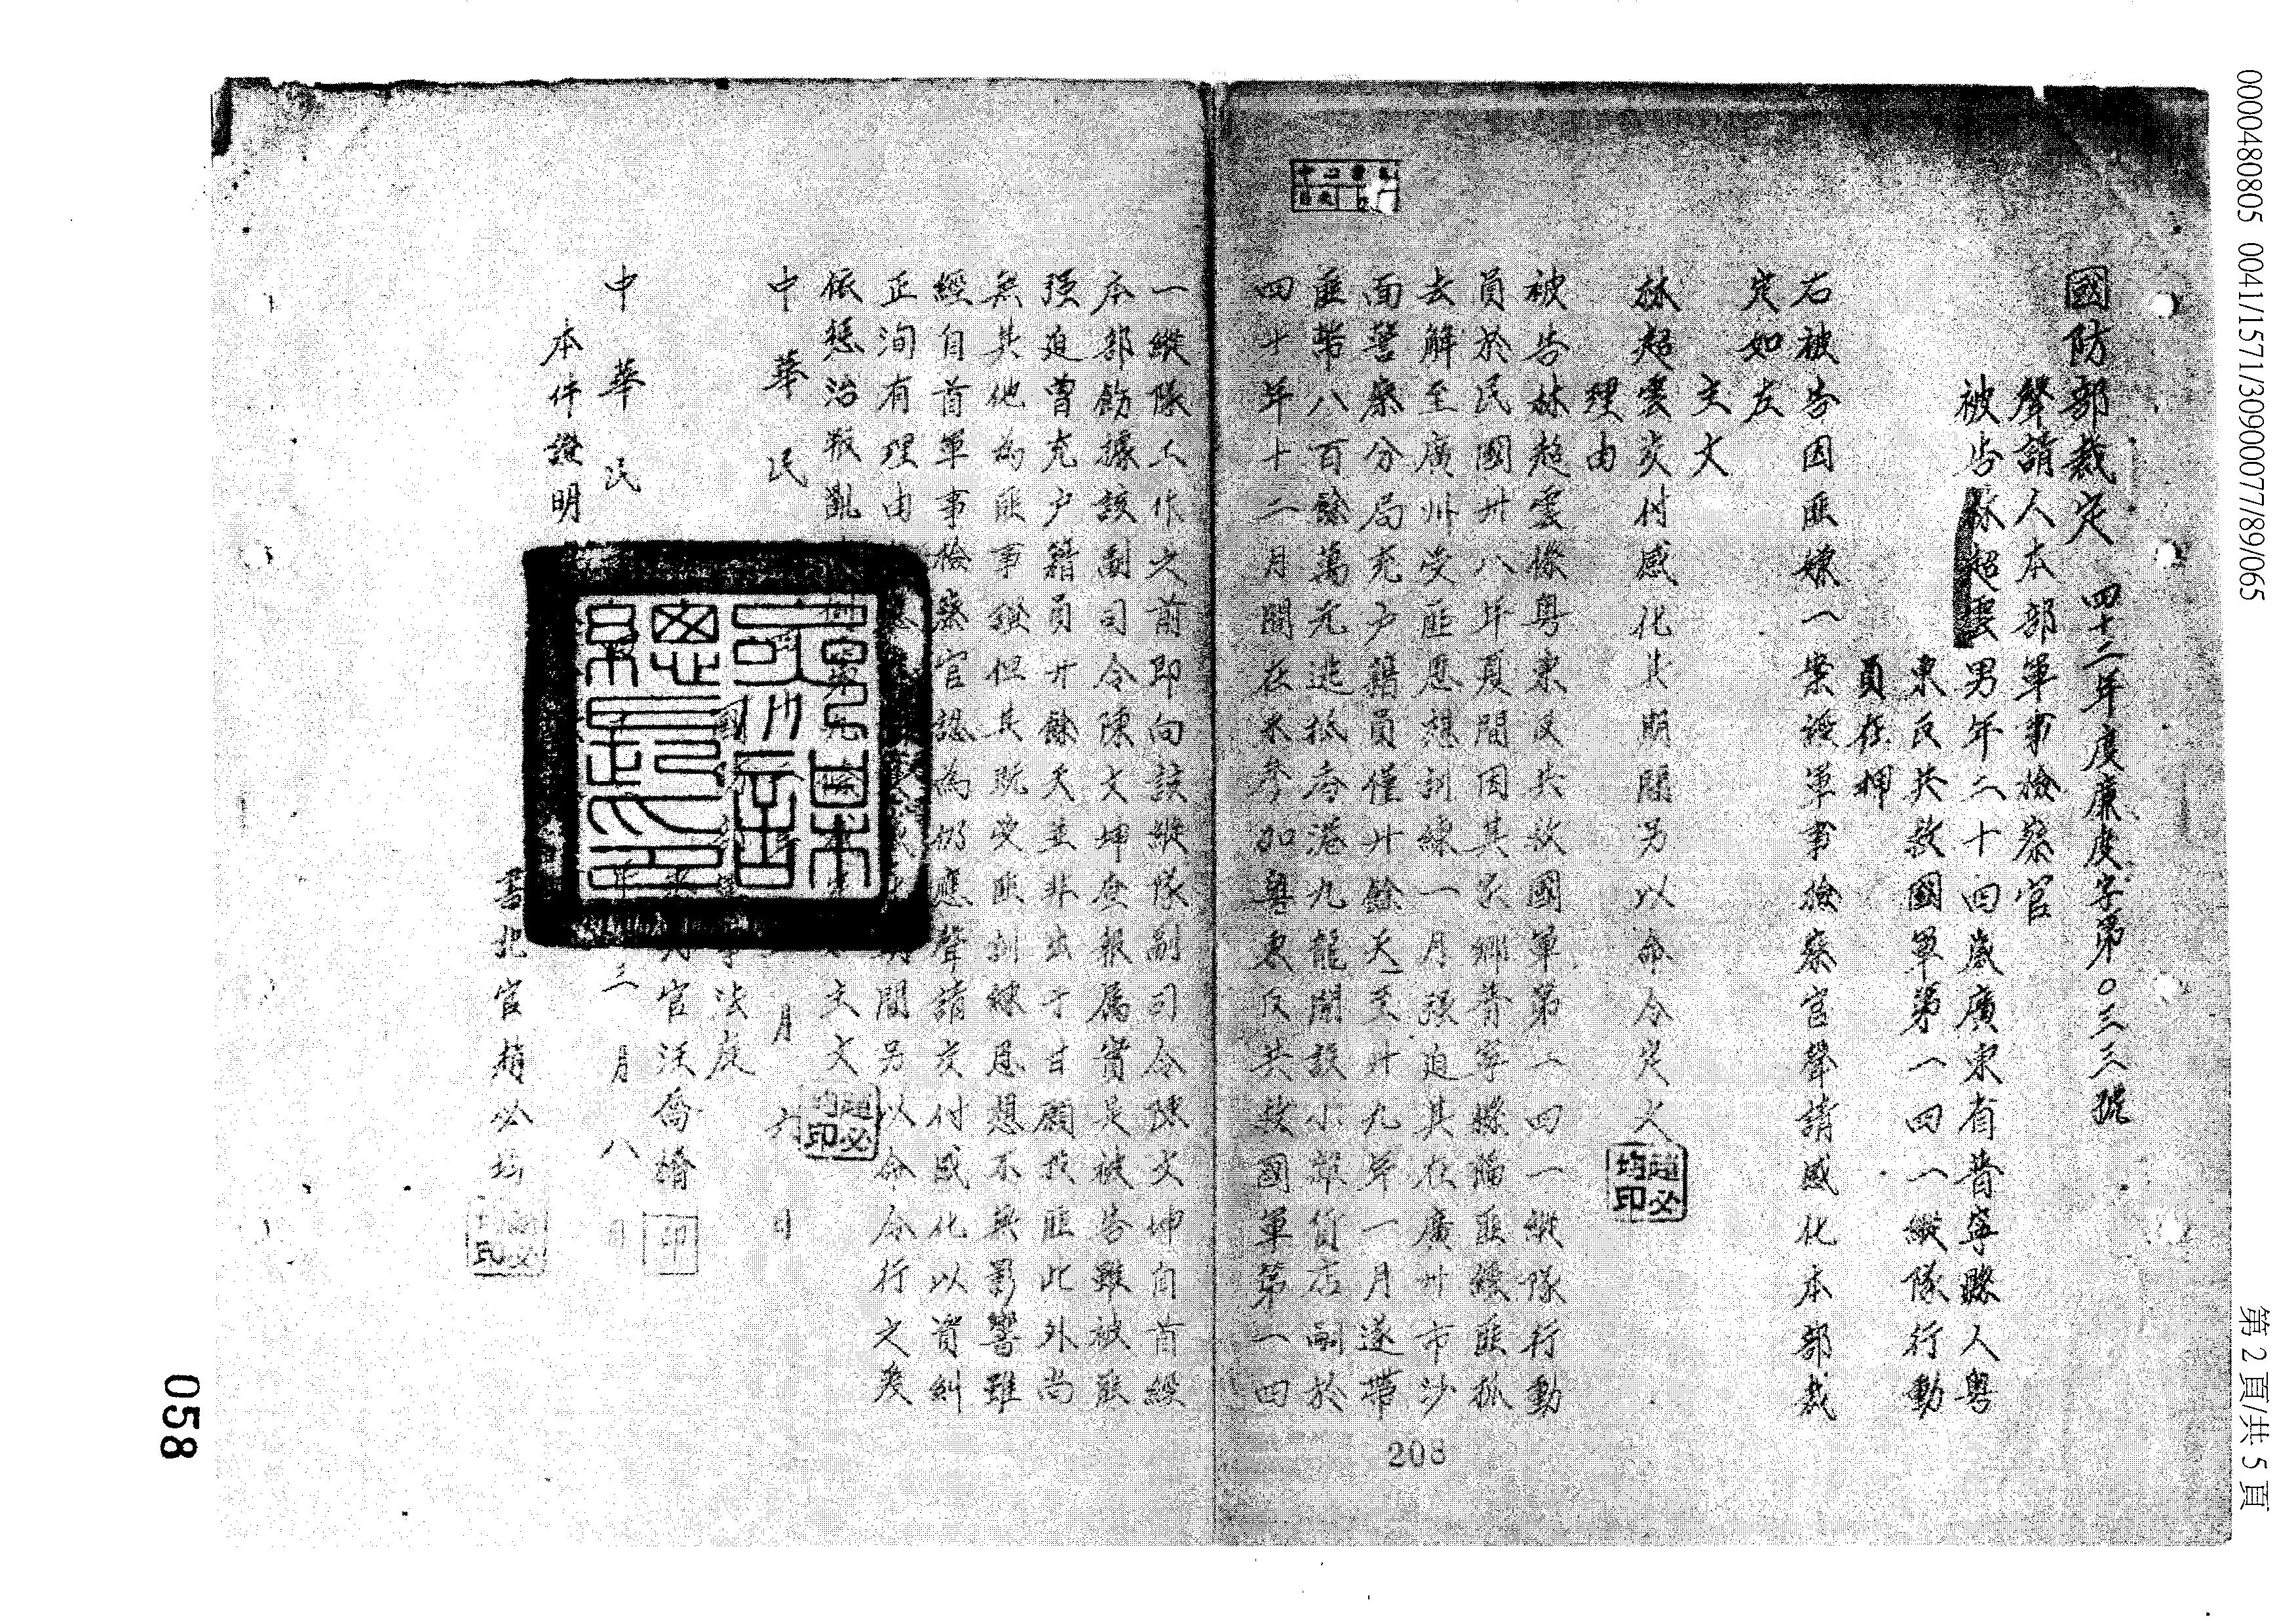 0000480805 0041/1571/30900077/89/065
第 2 頁/共 5 頁
國防部裁定 四十二年度廉度字第〇三三號
聲請人本部軍事檢察官
被告林超雲男年二十四歲廣東省普寧縣人粵
東反共救國軍第一四一縱隊行動
員在押
右被告因匪嫌一案經軍事檢察官聲請感化本部裁
定如左
主文
林超雲交付感化其期間另以命令定之
理由
被告林超雲係粵東反共救國軍第一四一縱隊行動
員於民國卅八年夏間因其家鄉普寧縣淪匪經匪抓
去解至廣州受匪思想訓練一月強迫其在廣州市沙
面警察分局充戶籍員僅廿餘天至卅九年一月遂帶
匪幣八百餘萬元逃抵香港九龍開設小雜貨店嗣於
四十年十二月間在來參加粵東反共救國軍第一四
一縱隊工作之前即向該縱隊副司令陳文坤自首經
本部飭據該副司令陳文坤查報屬實是被告雖被匪
強迫曾充戶籍員廿餘天並非出于甘願投匪此外尚
無其他為匪事證但其既受匪訓練思想不無影響雖
經自首軍事檢察官認為仍應聲請交付感化以資糾
正洵有理由 期間另以命令行之爰
依懲治叛亂 主文
中華民 月六日
法庭
官汪喬
中華民 三月八日
本件證明
書記官趙必均
趙必均印
趙必均印
印
208
058